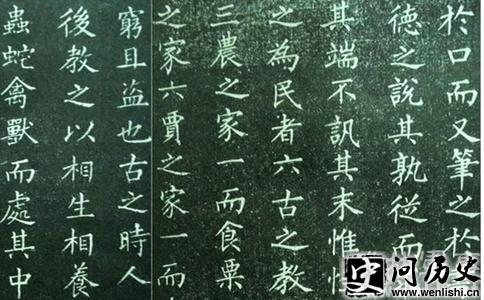 於口而又筆之於
德之說其孰從而
其端不訊其末惟
之為民者六古之教
三農之家一而食粟
之家六賈之家一而
窮且盜也古之時人
後教之以相生相養
蟲蛇禽獸而處其中
史 问历史
www.wenlishi.cn